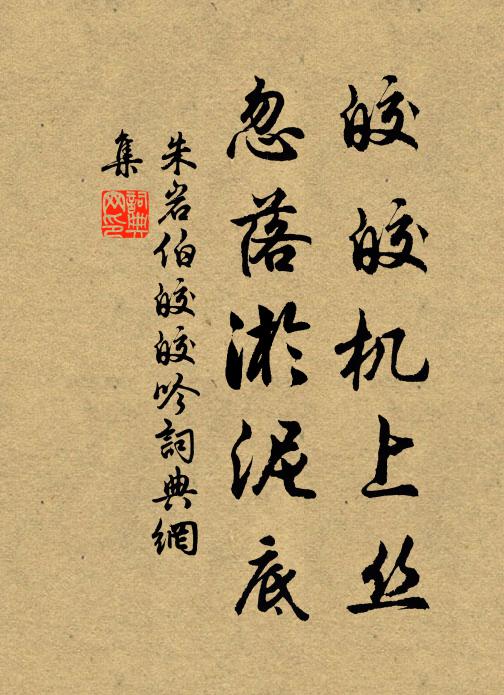 皎皎机上丝
忽落淤泥底
朱岩伯皎皎吟詞典網
集
詞典
网印